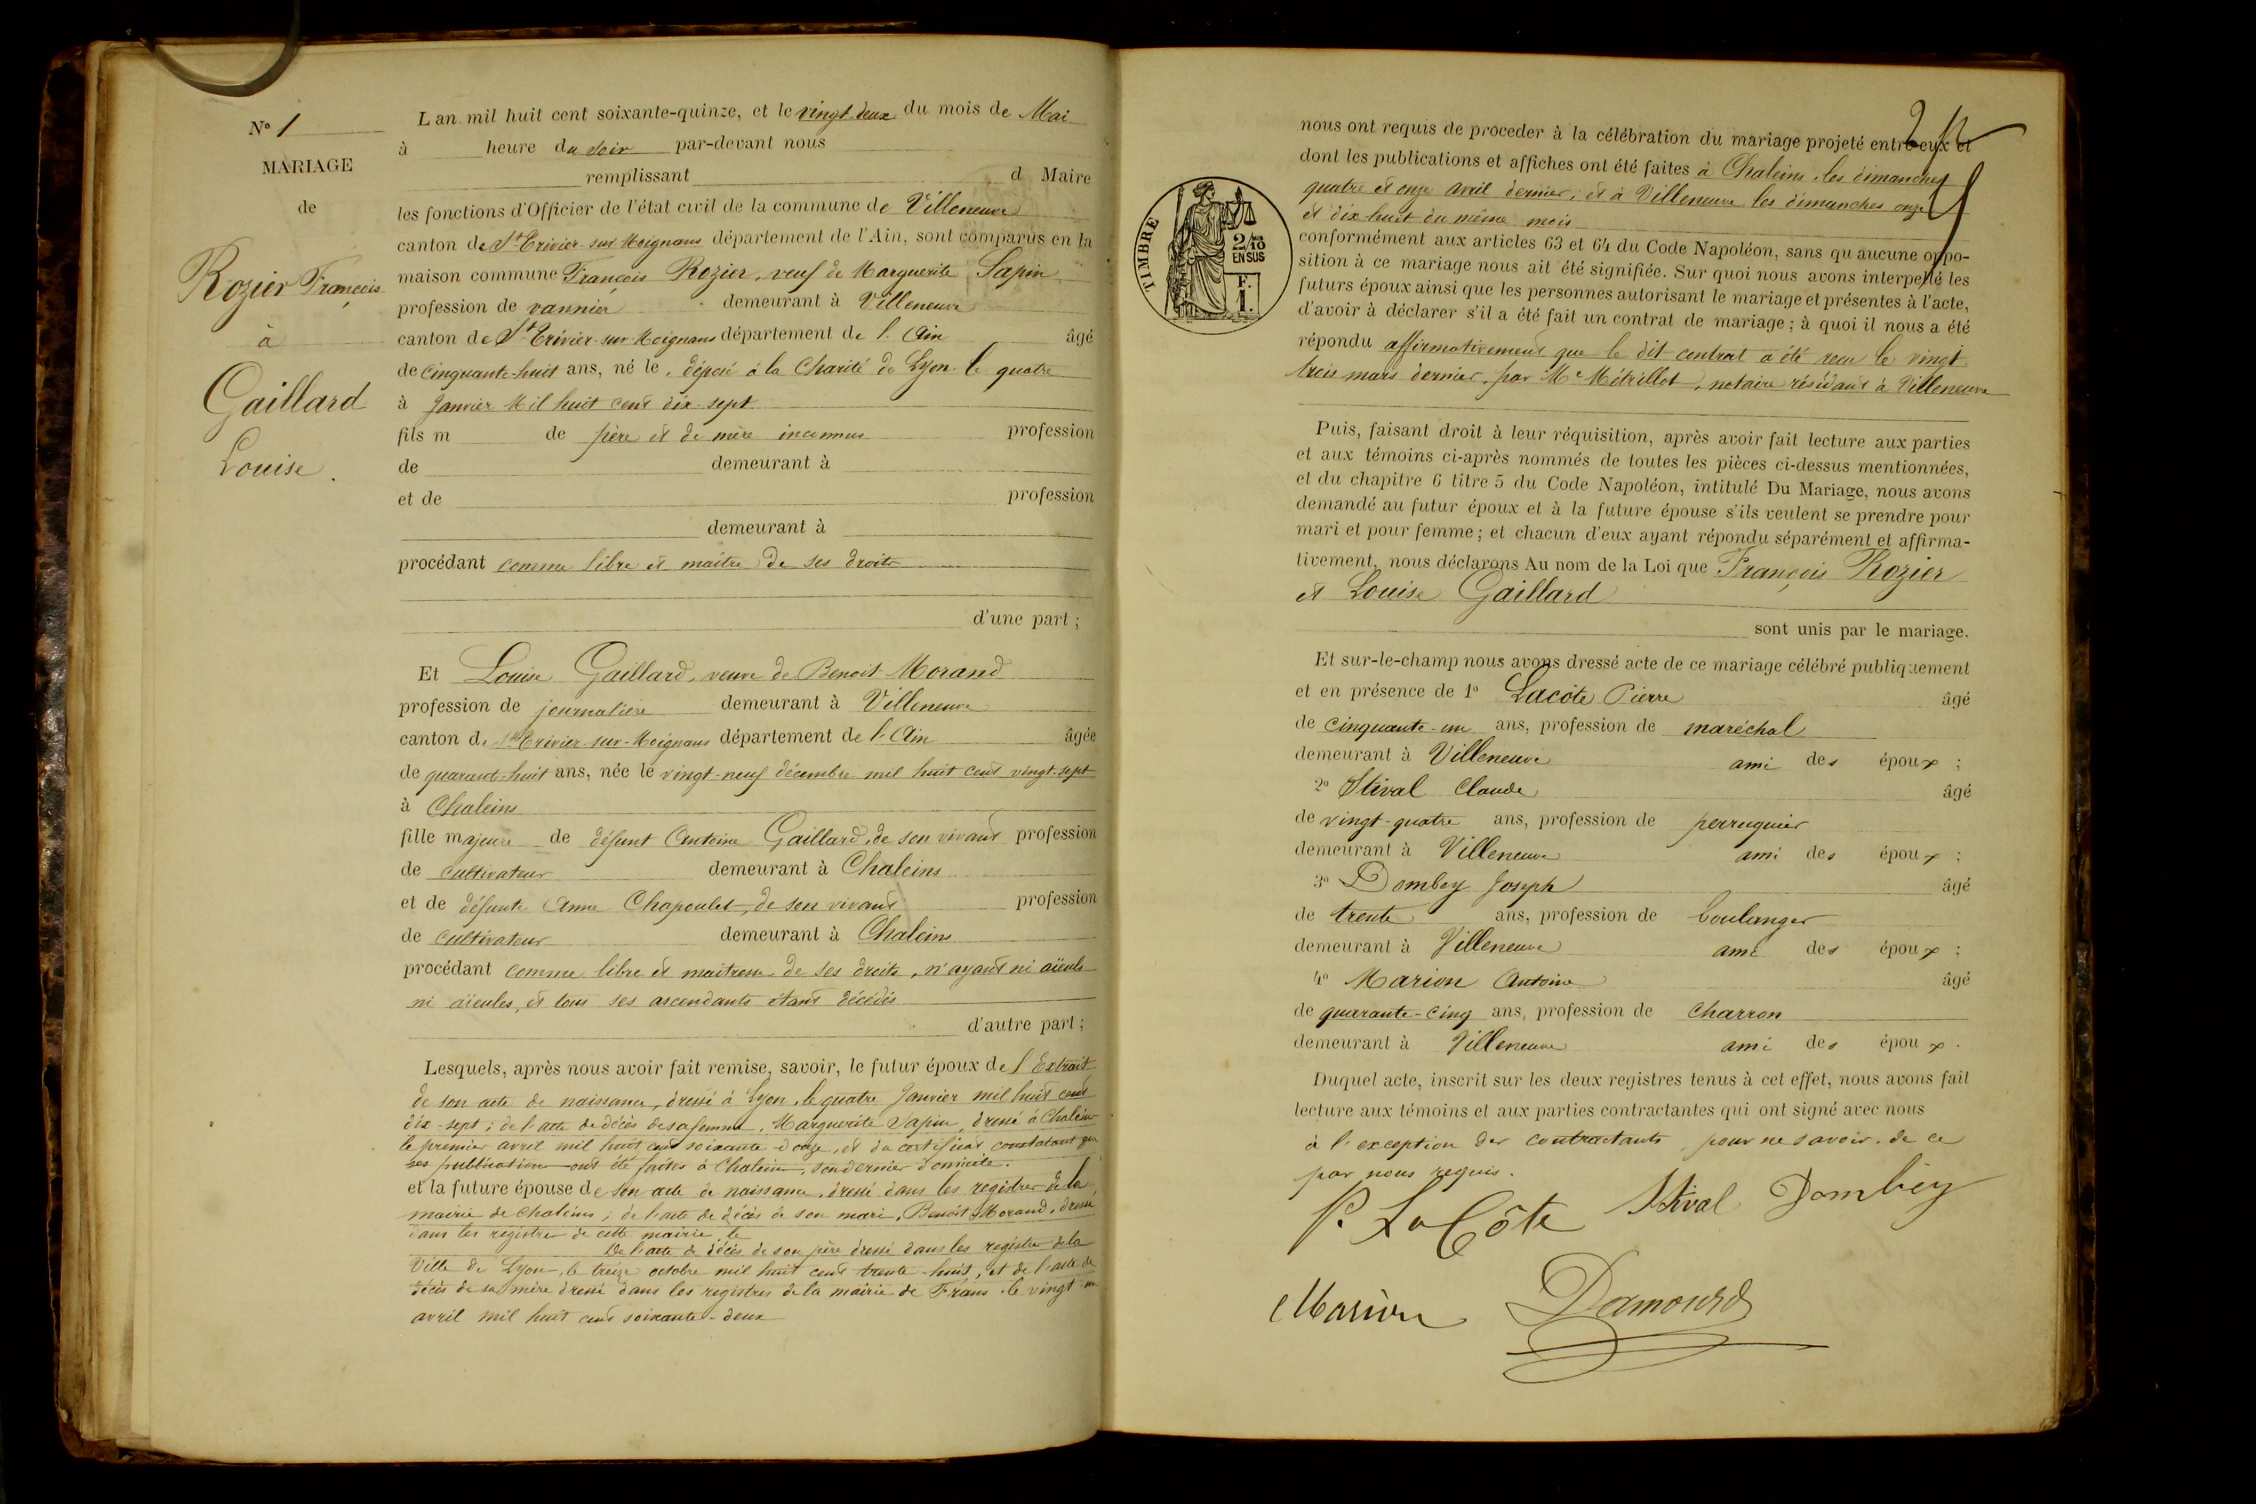 N° 1
MARIAGE
de
Rozier François
à
Gaillard
Louise.
L'an mil huit cent soixante-quinze, et le vingt-deux du mois de Mai
à heure du soir par-devant nous
remplissant d Maire
les fonctions d'Officier de l'état civil de la commune de Villeneuve
canton de St Trivier-sur-Moignans département de l'Ain, sont comparus en la
maison commune François Rozier, veuf de Marguerite Sapin
profession de vannier demeurant à Villeneuve
canton de St Trivier-sur-Moignans département de l'Ain âgé
de cinquante-huit ans, né le, déposé à la Charité de Lyon le quatre
à Janvier Mil huit cent dix-sept
fils m de père et de mère inconnus profession
de demeurant à
et de profession
demeurant à
procédant comme libre et maître de ses droits
d'une part ;
Et Louise Gaillard, veuve de Benoit Morand
profession de journalière demeurant à Villeneuve
canton de St Trivier-sur-Moignans département de l'Ain âgée
de quarante-huit ans, née le vingt-neuf décembre mil huit cent vingt-sept
à Chaleins
fille majeure de défunt Antoine Gaillard, de son vivant profession
de cultivateur demeurant à Chaleins
et de défunte Anne Chapoulet, de son vivant profession
de cultivateur demeurant à Chaleins
procédant comme libre et maitresse de ses droits, n'ayant ni aïeuls
ni aïeules, et tous ses ascendants étant décédés
d'autre part ;
Lesquels, après nous avoir fait remise, savoir, le futur époux de l'Extrait
de son acte de naissance, dressé à Lyon, le quatre Janvier mil huit cent
dix-sept ; de l'acte de décès de sa femme, Marguerite Sapin, dressé à Chaleins
le premier avril mil huit cent soixante-douze, et du certificat constatant que
ses publications ont été faites à Chaleins, son dernier domicile.
et la future épouse de son acte de naissance, dressé dans les registres de la
mairie de Chaleins ; de l'acte de décès de son mari, Benoit Morand, dressé
dans les registres de cette mairie, le
De l'acte de décès de son père dressé dans les registres de la
Ville de Lyon, le treize octobre mil huit cent trente-huit, et de l'acte de
décès de sa mère dressé dans les registres de la mairie de Frans le vingt-un
avril mil huit cent soixante-deux
2
TIMBRE
2/10
EN SUS
F.
1.
nous ont requis de proceder à la célébration du mariage projeté entre eux et
dont les publications et affiches ont été faites à Chaleins les dimanches
quatre et onze avril dernier, et à Villeneuve les dimanches onze
et dix-huit du même mois
conformément aux articles 63 et 64 du Code Napoléon, sans qu'aucune oppo-
sition à ce mariage nous ait été signifiée. Sur quoi nous avons interpellé les
futurs époux ainsi que les personnes autorisant le mariage et présentes à l'acte,
d'avoir à déclarer s'il a été fait un contrat de mariage ; à quoi il nous a été
répondu affirmativement que le dit contrat a été reçu le vingt
trois mars dernier, par Me Métrillot, notaire résidant à Villeneuve
Puis, faisant droit à leur réquisition, après avoir fait lecture aux parties
et aux témoins ci-après nommés de toutes les pièces ci-dessus mentionnées,
et du chapitre 6 titre 5 du Code Napoléon, intitulé Du Mariage, nous avons
demandé au futur époux et à la future épouse s'ils veulent se prendre pour
mari et pour femme ; et chacun d'eux ayant répondu séparément et affirma-
tivement, nous déclarons Au nom de la Loi que François Rozier
et Louise Gaillard
sont unis par le mariage.
Et sur-le-champ nous avons dressé acte de ce mariage célébré publiquement
et en présence de 1° Lacôte Pierre âgé
de cinquante-un ans, profession de maréchal
demeurant à Villeneuve ami des époux ;
2° Stival Claude âgé
de vingt-quatre ans, profession de perruquier
demeurant à Villeneuve ami des époux ;
3° Dombey Joseph âgé
de trente ans, profession de boulanger
demeurant à Villeneuve ami des époux ;
4° Marion Antoine âgé
de quarante-cinq ans, profession de charron
demeurant à Villeneuve ami des époux.
Duquel acte, inscrit sur les deux registres tenus à cet effet, nous avons fait
lecture aux témoins et aux parties contractantes qui ont signé avec nous
à l'exception des contractants, pour ne savoir, de ce
par nous requis.
P. La Côte Stival Dombey
Marion Damourd